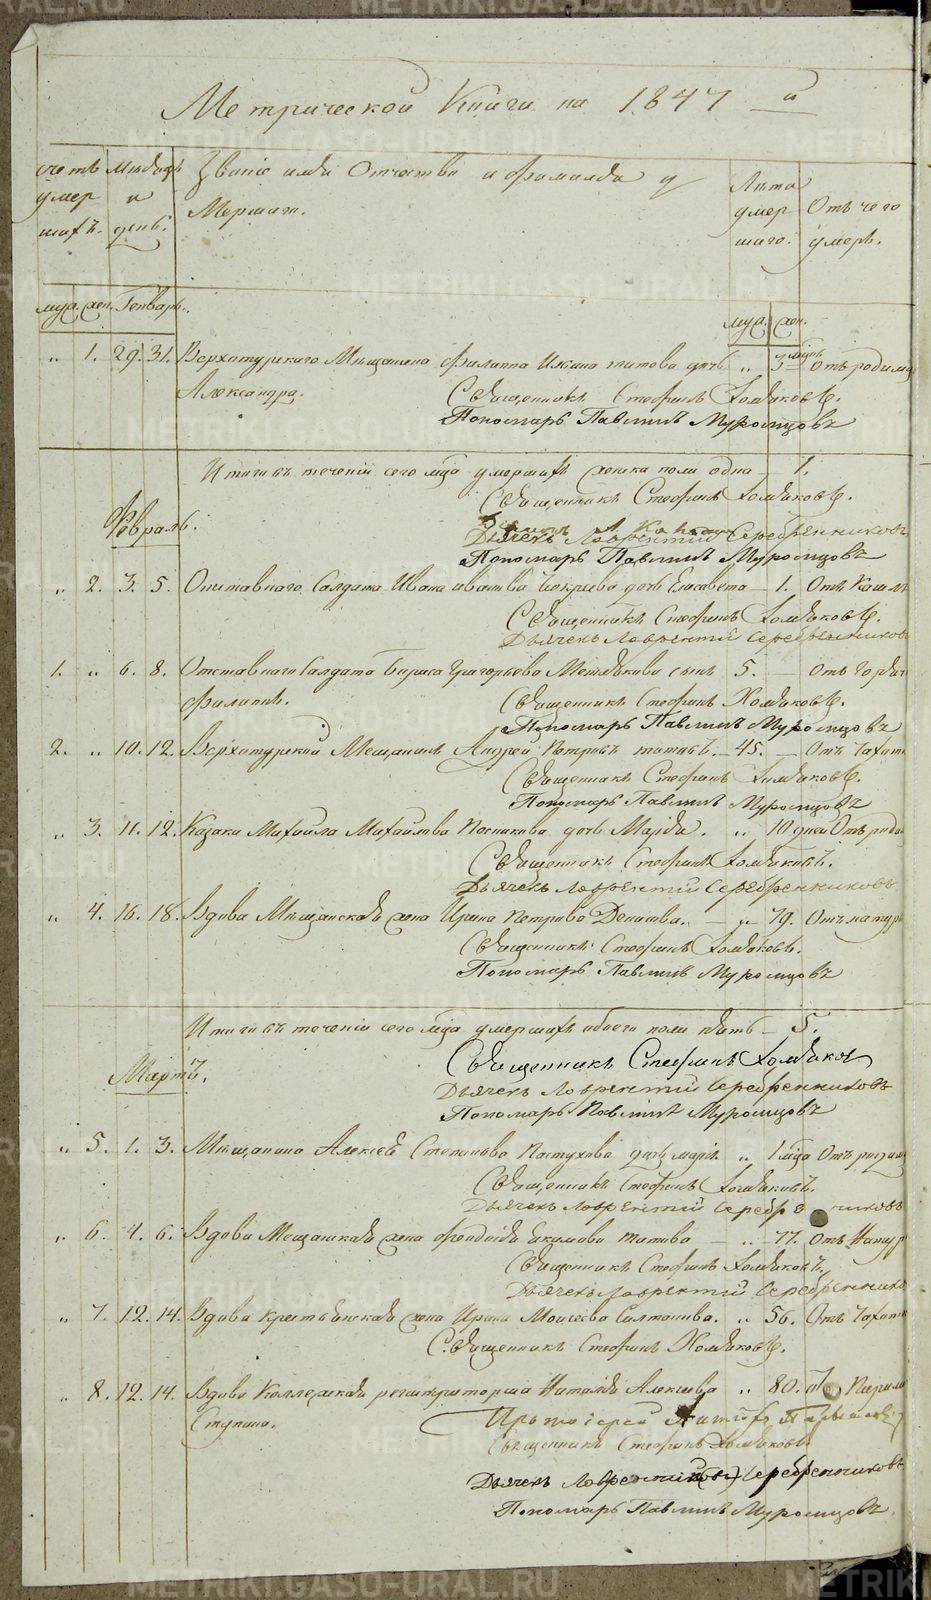 Метрической Книги на 1847 й
счетъ умер шихъ.
Мѣсяцъ и день.
Званіе имя Отчество и фамилія у
Мершаг.
Лѣта умер шаго.
Отъ чего умеръ.
муж. жен. Генварь.
муж. жен.
" 1. 29. 31. Верхотурскаго Мѣщанина Филиппа Титова дочь " 3 Отъ родим
Александра. Священникъ Стефанъ Хомяковъ.
Пономарь Павлинъ Муромцовъ
Итого въ теченіи сего мца умершихъ женска пола одна — 1.
Священникъ Стефанъ Хомяковъ.
Февраль.
Дьячекъ Лаврентій Серебренниковъ
Пономарь Павлинъ Муромцовъ
" 2. 3. 5. Отставнаго Солдата Ивана дочь Елисавета — 1. Отъ Кашля
Священникъ Стефанъ Хомяковъ.
Дьячекъ Лаврентій Серебренниковъ
1. " 6. 8. Отставнаго Солдата Бориса Григорьева сынъ 5. — Отъ Горяч
Филиппъ. Священникъ Стефанъ Хомяковъ.
Пономарь Павлинъ Муромцовъ
2. " 10. 12. Верхотурскій Мещанинъ Андрей Петровъ Титовъ. — 45. — Отъ Чахот
Священникъ Стефанъ Хомяковъ.
Пономарь Павлинъ Муромцовъ
" 3. 11. 12. Казака Михайла Михайлова Посникова дочь Марія. " 10 дней Отъ роди
Священникъ Стефанъ Хомяковъ.
Дьячекъ Лаврентій Серебренниковъ
" 4. 16. 18. Вдова Мѣщанская жена Ирина Петрова — " 79. Отъ натур
Священникъ Стефанъ Хомяковъ.
Пономарь Павлинъ Муромцовъ
Итого въ теченіи сего мца умершихъ обоего пола пять — 5.
Священникъ Стефанъ Хомяков
Мартъ.
Дьячекъ Лаврентій Серебренниковъ
Пономарь Павлинъ Муромцовъ
" 5. 1. 3. Мѣщанина Алексѣя Степанова Пастухова дочь марія. " 1 мца Отъ родим
Священникъ Стефанъ Хомяковъ.
Дьячекъ Лаврентій Серебре нниковъ
" 6. 4. 6. Вдова Мещанская жена Екимова Титова — " 77. Отъ Натур
Священникъ Стефанъ Хомяковъ.
Дьячекъ Лаврентій Серебреннико
" 7. 12. 14. Вдова крестьянская жена Ирина Моисеева Салтанова. " 56. Отъ Чахотк
Священникъ Стефанъ Хомяковъ.
" 8. 12. 14. Вдова Коллежская регистраторша Наталья Алексѣева " 80. Парали
Ступина. Протоіерей
Священникъ Стефанъ Хомяковъ.
Дьячекъ Лаврентій Серебренниковъ
Пономарь Павлинъ Муромцовъ
METRIKI.GASO-URAL.RU